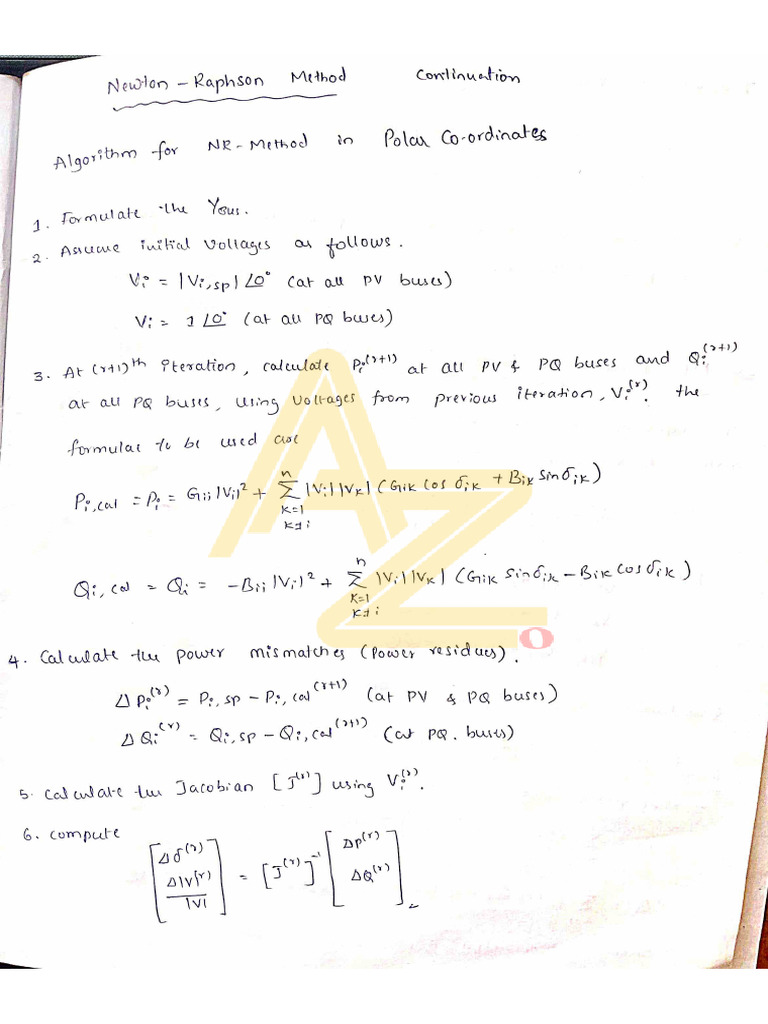 Newton - Raphson Method Continuation
Algorithm for NR - Method in Polar Co-ordinates
1. Formulate the YBUS.
2. Assume initial Voltages as follows.
Vi = |Vi,sp| ∠0° (at all PV buses)
Vi = 1 ∠0° (at all PQ buses)
3. At (r+1)th iteration, calculate Pi^(r+1) at all PV & PQ buses and Qi^(r+1)
at all PQ buses, using Voltages from previous iteration, Vi^(r). the
formulae to be used are
Pi,cal = Pi = Gii|Vi|² + Σ(k=1, k≠i to n) |Vi||Vk| (Gik cos δik + Bik sin δik)
Qi,cal = Qi = -Bii|Vi|² + Σ(k=1, k≠i to n) |Vi||Vk| (Gik sin δik - Bik cos δik)
4. Calculate the power mismatches (Power residues).
ΔPi^(r) = Pi,sp - Pi,cal^(r+1) (at PV & PQ buses)
ΔQi^(r) = Qi,sp - Qi,cal^(r+1) (at PQ. buses)
5. Calculate the Jacobian [J^(r)] using Vi^(r).
6. compute
[Δδ^(r) ; Δ|V|^(r) / |V|] = [J^(r)]^-1 [ΔP^(r) ; ΔQ^(r)]
AZO